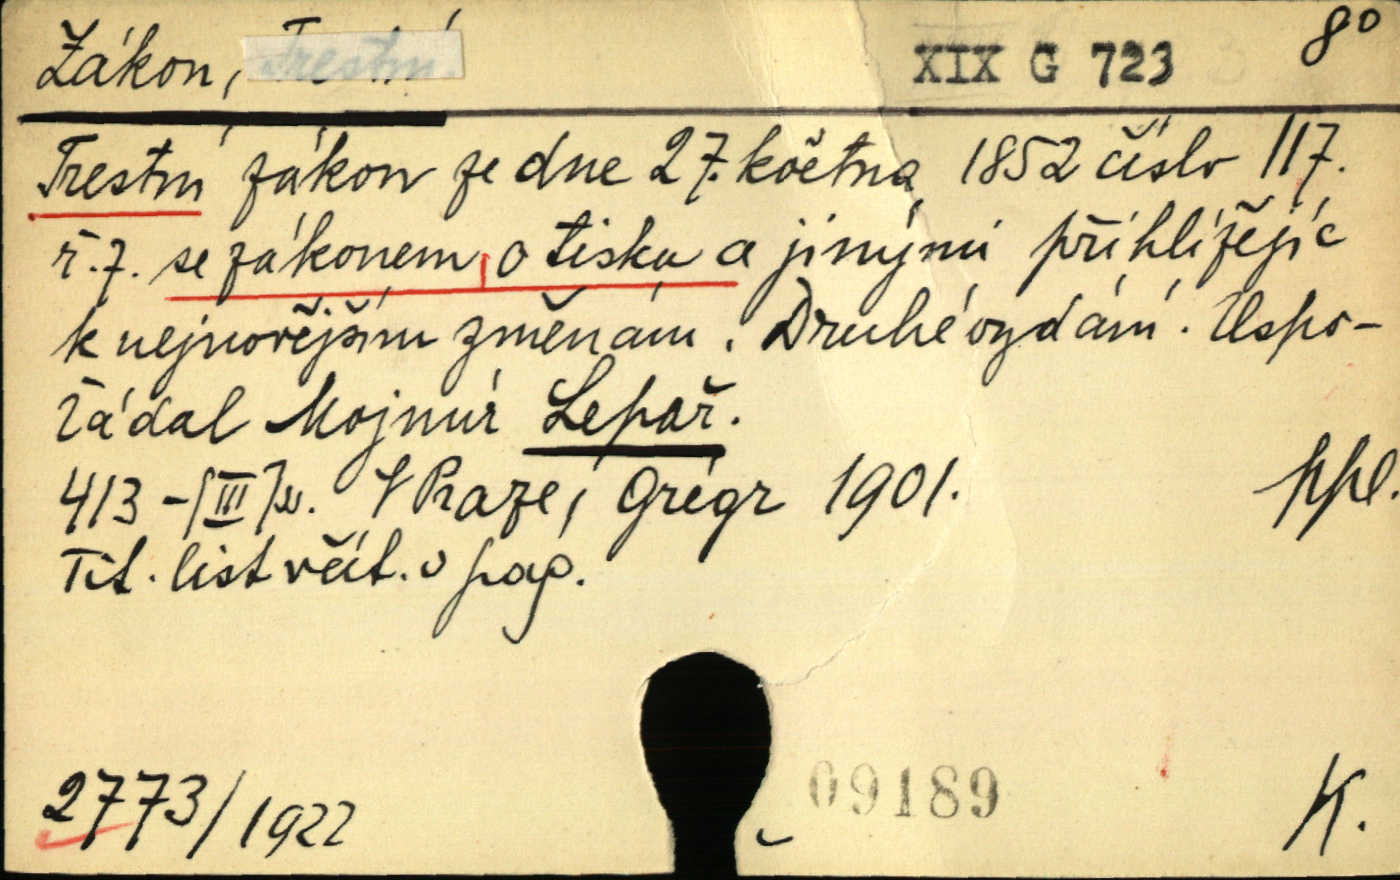 Zákon, Trestní XIX G 723 8°
Trestní zákon ze dne 27. května 1852 číslo 117.
ř. z. se zákonem o tisku a jinými přihlížejíc
k nejnovějším změnám. Druhé vydání. Uspo-
řádal Mojmír Lepař.
413 - [III] s. V Praze, Grégr 1901. ppl.
Tit. list včít. v pag.
2773/1922 09189 K.